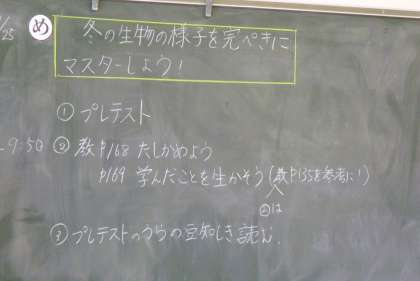 1/25 め 冬の生物の様子を完ぺきに
マスターしよう!
① プレテスト
9:50 ② 教P168 たしかめよう
P169 学んだことを生かそう (教P135を参考に!)
②は
③ プレテストのうらの豆知しき読む.